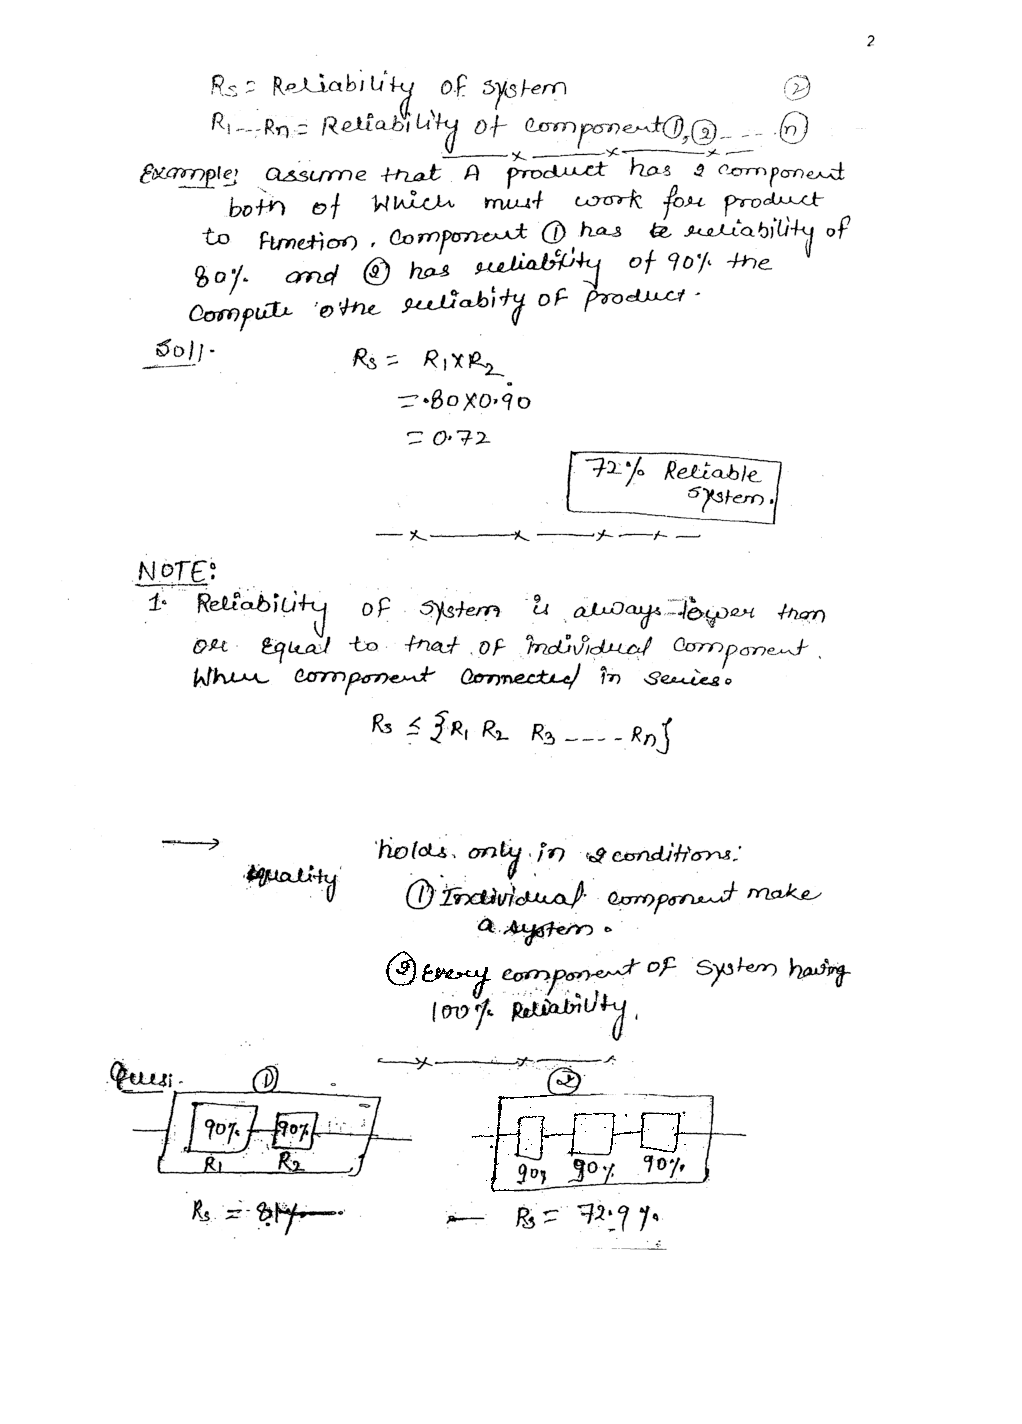 2
Rs = Reliability of system
R1---Rn = Reliability of component ①, ② ----- ⓝ
Example; assume that A product has 2 component
both of which must work for product
to function, component ① has reliability of
80% and ② has reliability of 90% the
Compute the reliabity of product.
Soll.
Rs = R1 X R2
= .80 X 0.90
= 0.72
72% Reliable
system.
NOTE:
1. Reliability of system is always lower than
or Equal to that of individual component.
When component connected in series.
Rs ≤ {R1 R2 R3 ---- Rn}
→ equality holds only in 2 conditions:
① Individual component make
a system.
② Every component of system having
100% Reliability.
Ques:- ① ②
90% 90%
R1 R2
90% 90% 90%
Rs = 81% Rs = 72.9%